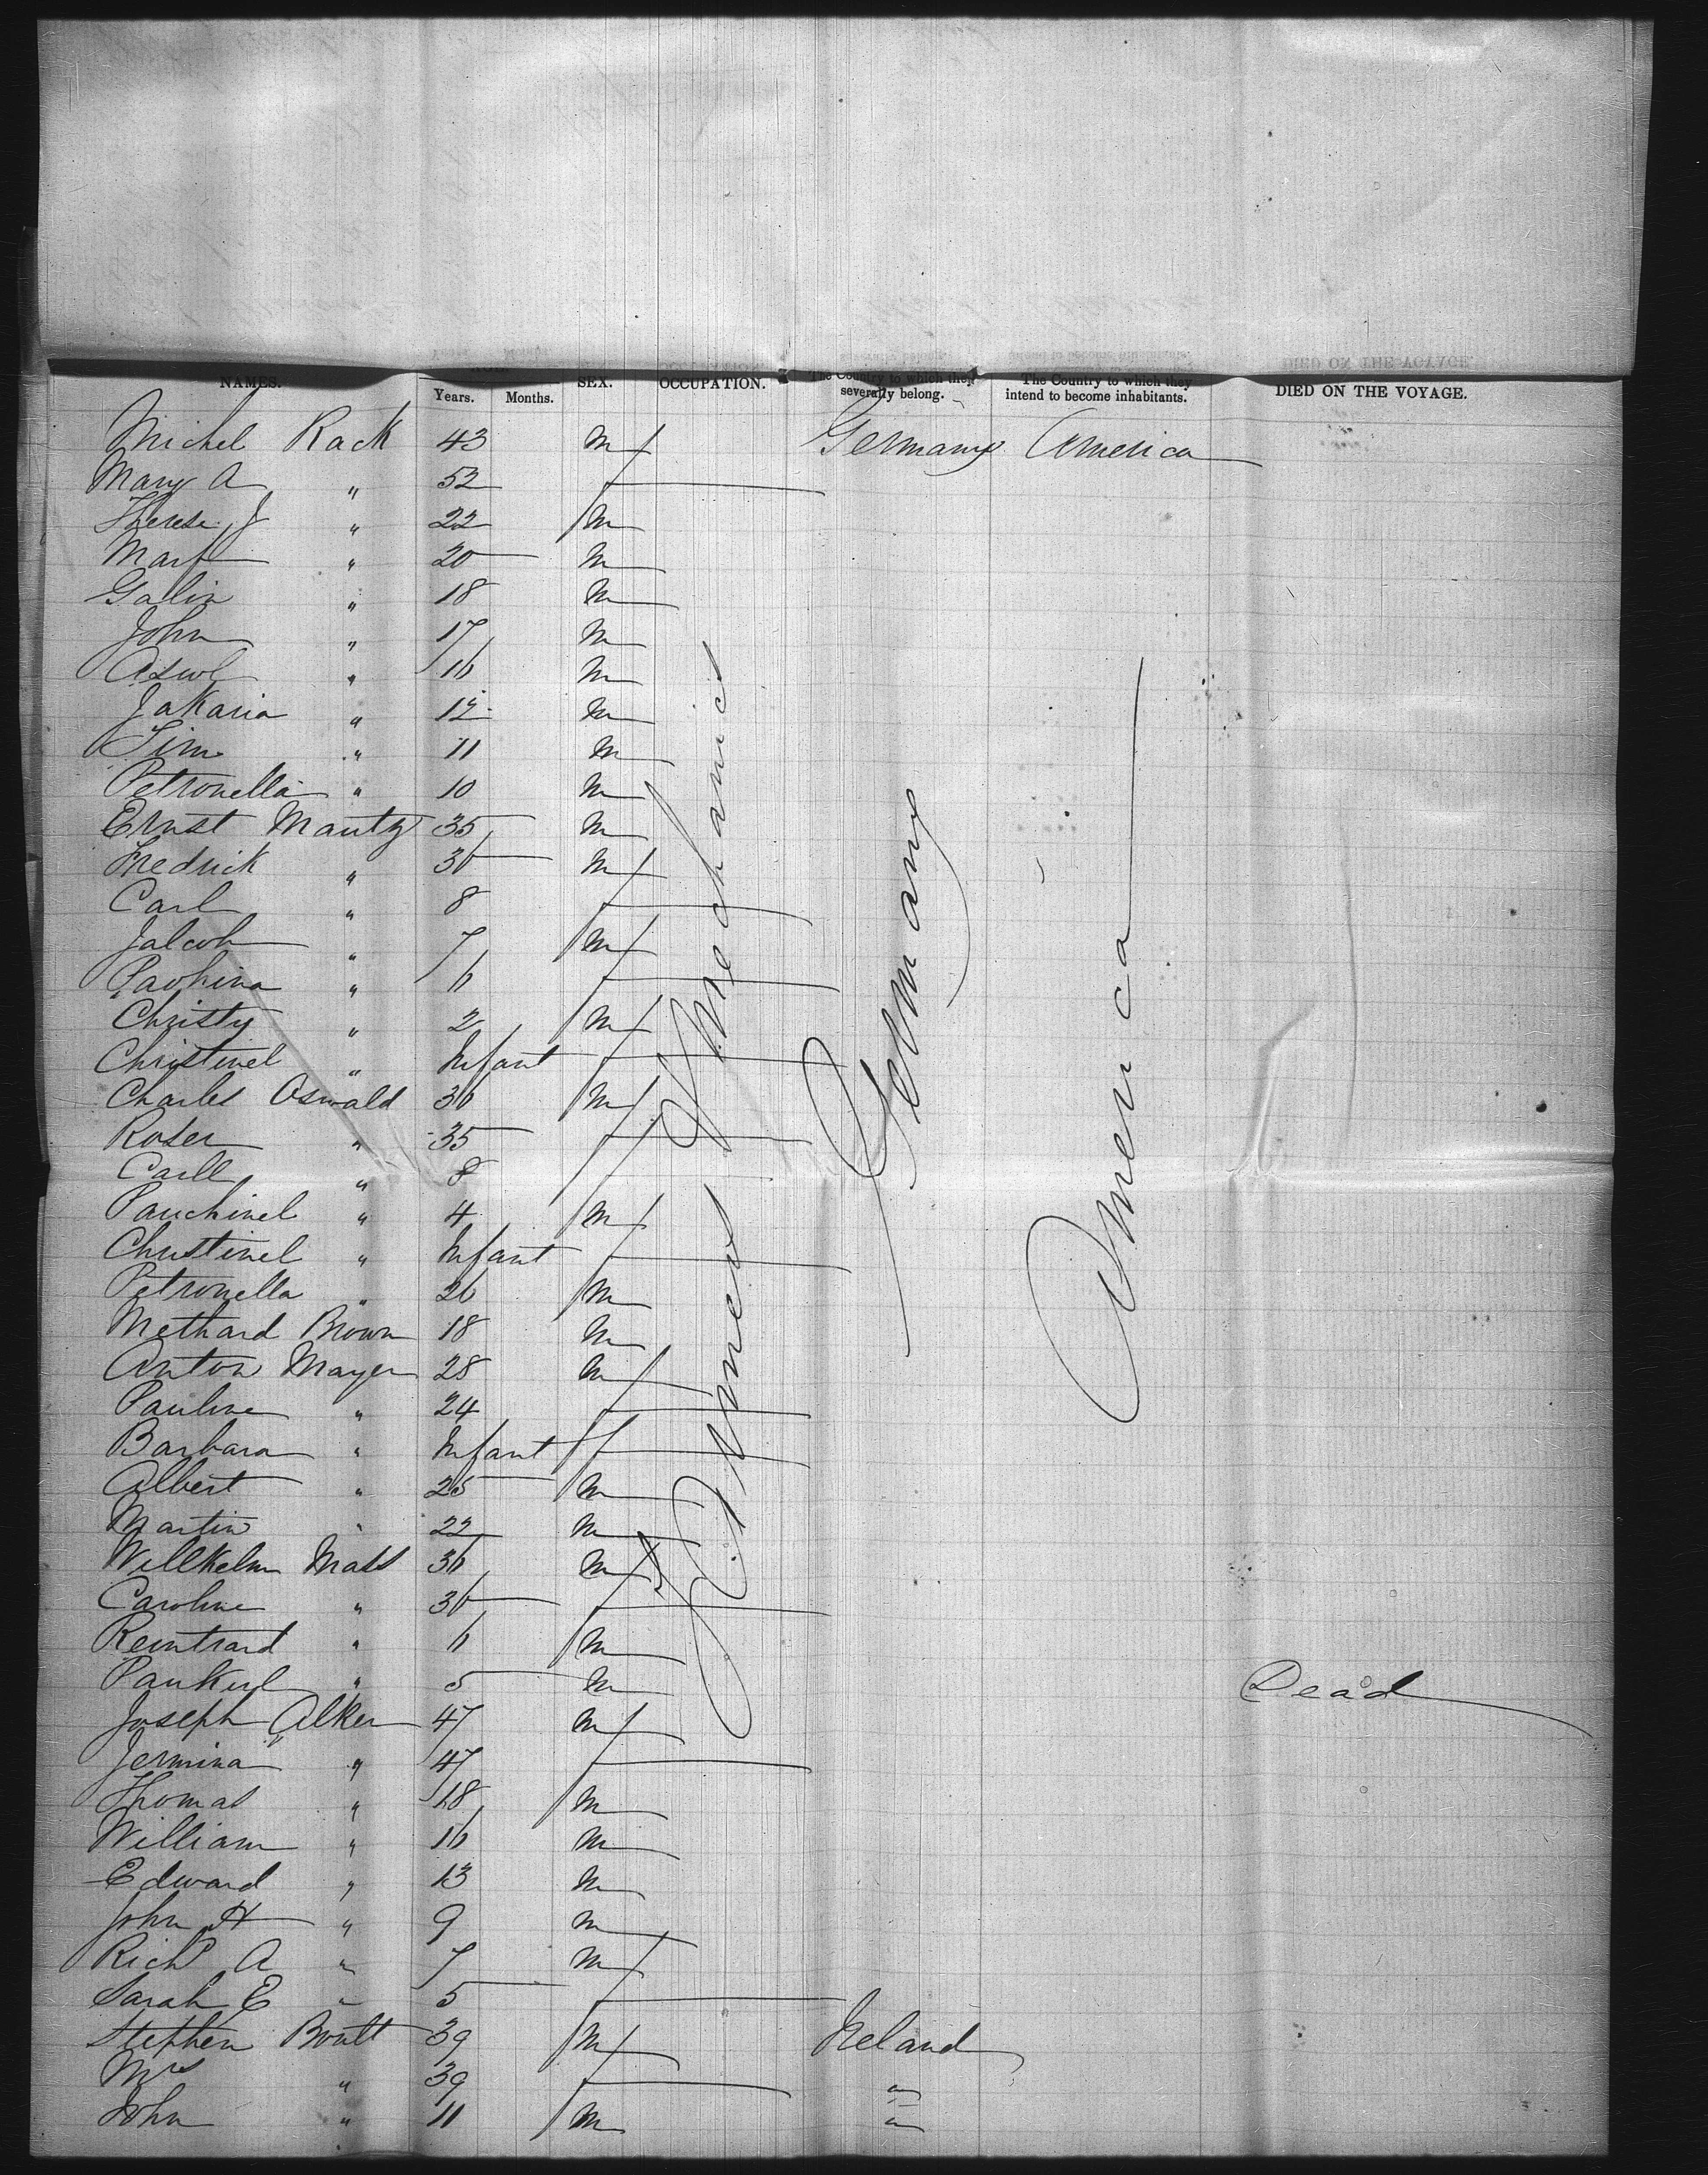 NAMES. Years. Months. SEX. OCCUPATION. The Country to which they severally belong. The Country to which they intend to become inhabitants. DIED ON THE VOYAGE.
Michel Rack 43 m Germany America
Mary A " 52 f
Therese J " 22 m
" 20 m
" 18 m
John " 17 m
" 16 m
Jakaria " 12 m
Tim " 11 m
Petronella " 10 m
Ernst Mautz 35 m
Fredrick " 36 m
Carl " 8 f
Jalcoh " 7 m
" 6 f
Christy " 2 m
Christinel " Infant f
Charles Oswald 36 m
Roser " 35 f
Carll " 8 f
Pauchinel " 4 m
Christinel " Infant f
Petronella " 26 m
Methard Brown 18 m
Anton Mayer 28 m
Pauline " 24 f
Barbara " Infant f
Albert " 25 m
Martin " 22 m
Willhelm Mass 36 m
Caroline " 36 f
" 6 m
" 5 m Dead
Joseph Alker 47 m
Jermina " 47 f
Thomas " 18 m
William " 16 m
Edward " 13 m
John H " 9 m
Richd A " 7 m
Sarah E " 5 f
Stephen Boult 39 m Ireland
Mrs " 39 f "
John " 11 m "
Farmers & Mechanics
Germany
America